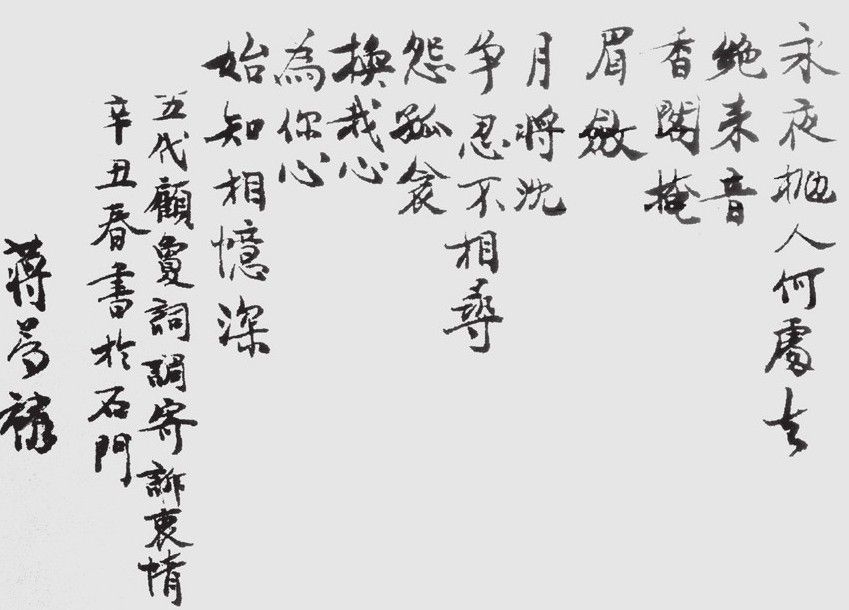 永夜抛人何處去
絶來音
香閣掩
眉斂
月將沈
争忍不相尋
怨孤衾
換我心
為你心
始知相憶深
五代顧敻詞調寄訴衷情
辛丑春書於石門
蔣